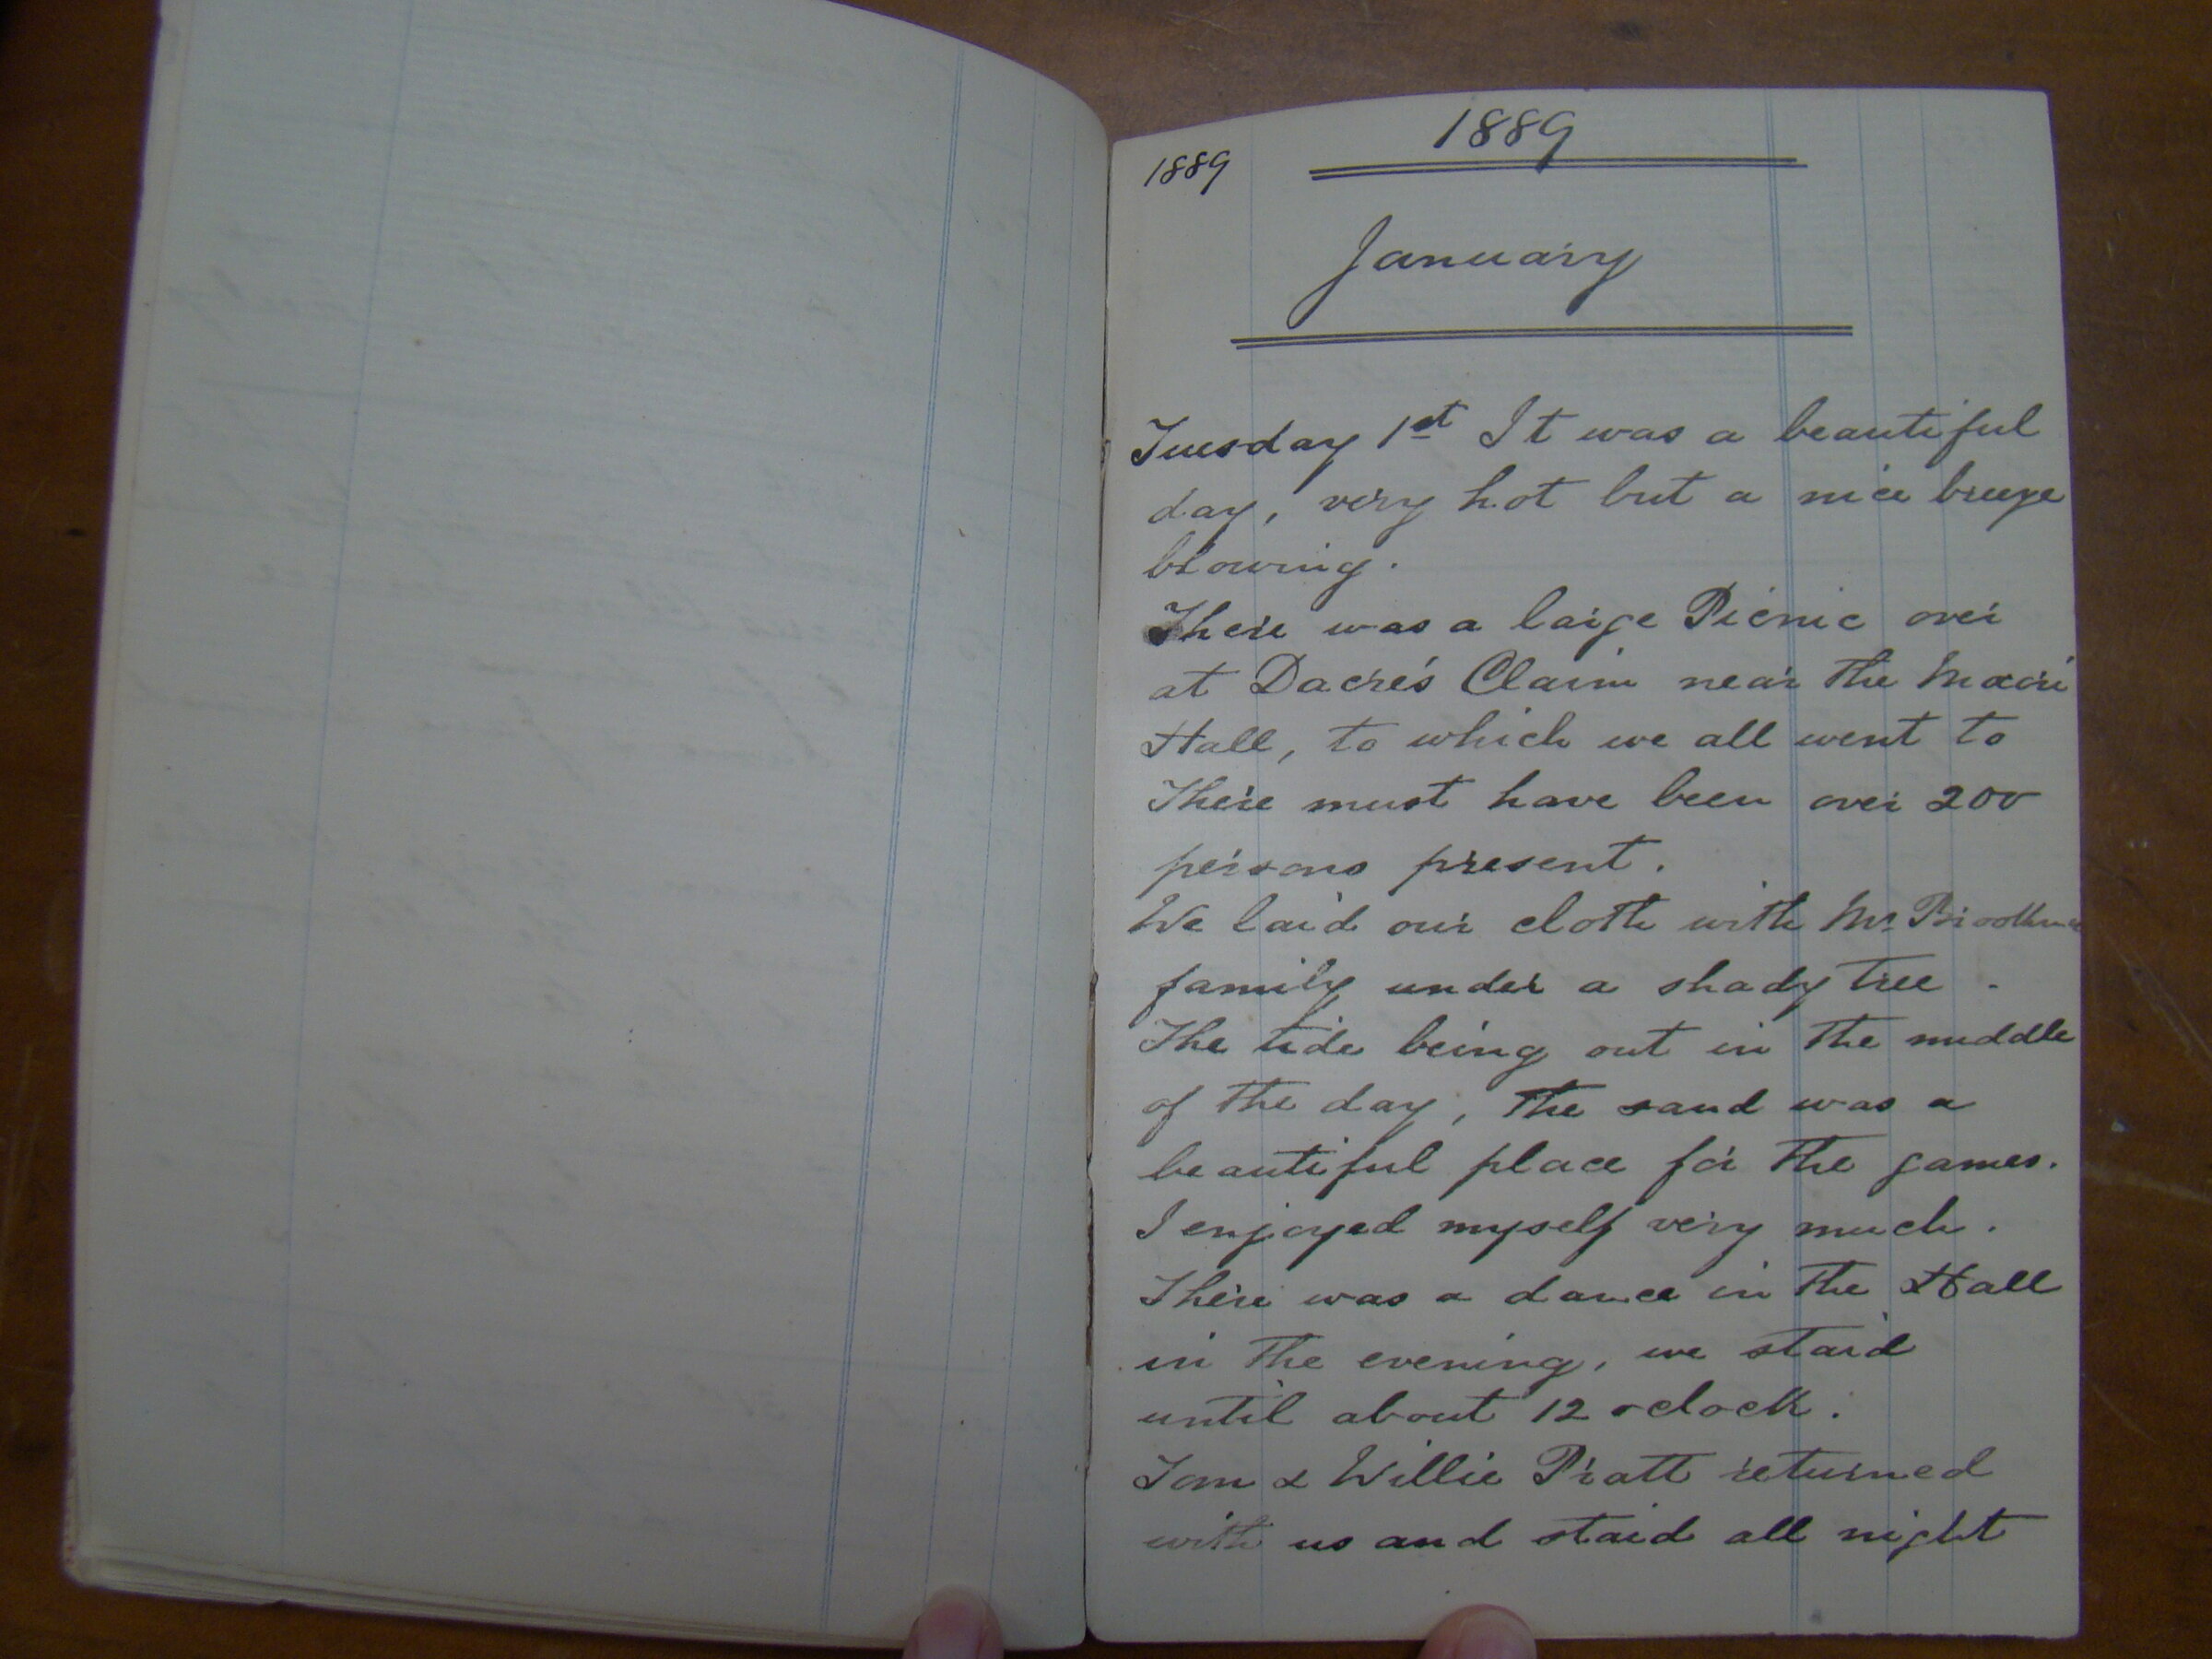 1889
1889
January
Tuesday 1st It was a beautiful
day, very hot but a nice breeze
blowing.
There was a large Picnic over
at Dacre's Claim near the Maori
Hall, to which we all went to
There must have been over 200
persons present.
We laid our cloth with Mr.
family under a shady tree.
The tide being out in the middle
of the day, the sand was a
beautiful place for the games.
I enjoyed myself very much.
There was a dance in the Hall
in the evening, we staid
until about 12 oclock.
Tom & Willie Pratt returned
with us and staid all night